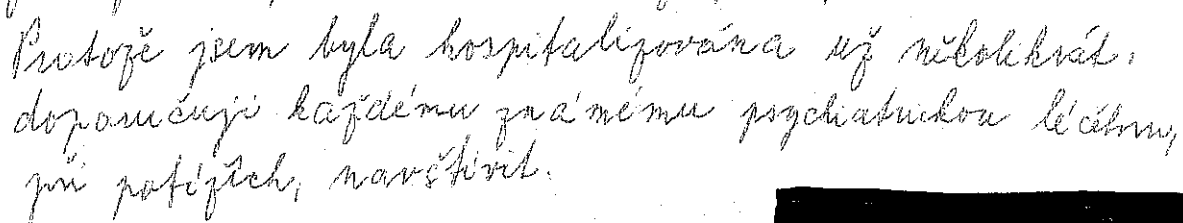 Protože jsem byla hospitalizována už několikrát,
doporučuji každému známému psychiatrickou léčebnu,
při potížích, navštívit.